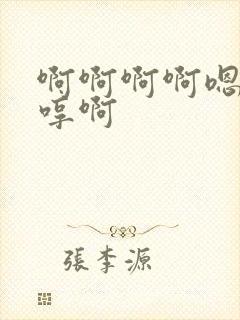 啊啊啊啊嗯
哼啊
張李源